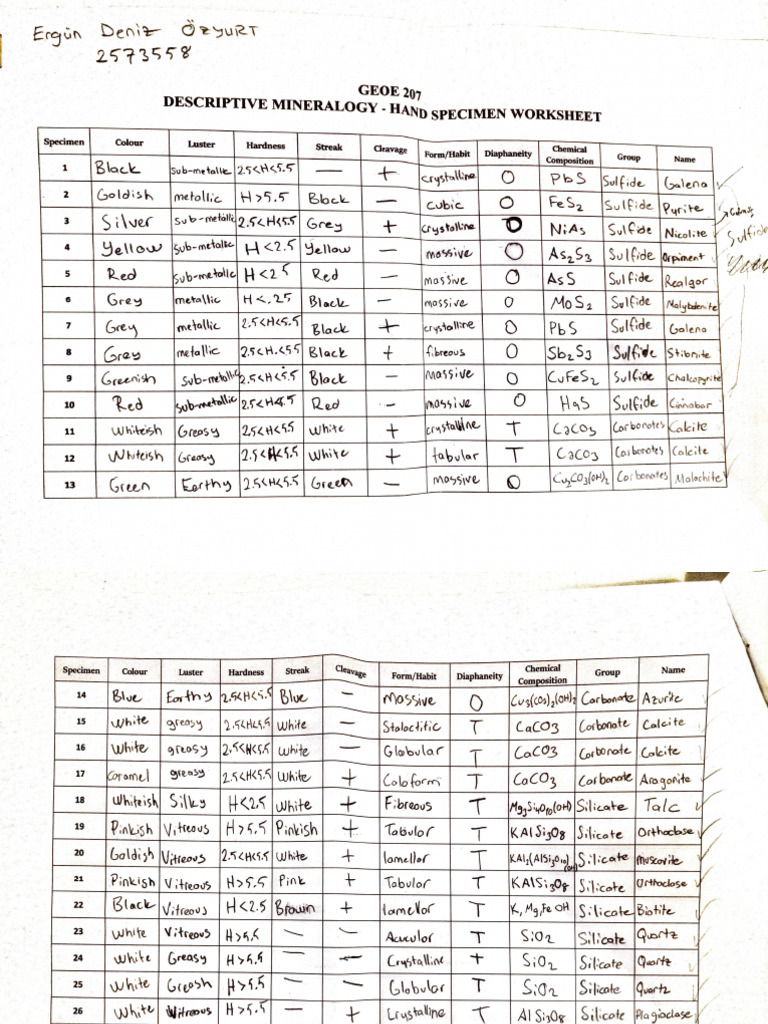 Ergün Deniz ÖZYURT
2573558
GEOE 207
DESCRIPTIVE MINERALOGY - HAND SPECIMEN WORKSHEET
Specimen Colour Luster Hardness Streak Cleavage Form/Habit Diaphaneity Chemical Composition Group Name
1 Black sub-metallic 2.5<H<5.5 — + crystalline O PbS Sulfide Galena
2 Goldish metallic H>5.5 Black — cubic O FeS2 Sulfide Pyrite
3 Silver sub-metallic 2.5<H<5.5 Grey + crystalline O NiAs Sulfide Nicolite
Sulfide
4 Yellow sub-metallic H<2.5 Yellow — massive O As2S3 Sulfide Orpiment
5 Red sub-metallic H<25 Red — massive O AsS Sulfide Realgar
6 Grey metallic H<.25 Black — massive O MoS2 Sulfide Molybdenite
7 Grey metallic 2.5<H<5.5 Black + crystalline O PbS Sulfide Galena
8 Grey metallic 2.5<H.<55 Black + fibreous O Sb2S3 Sulfide Stibnite
9 Greenish sub-metallic 2.5<H<5.5 Black — massive O CuFeS2 Sulfide Chalcopyrite
10 Red sub-metallic 2.5<H<4.5 Red — massive O HgS Sulfide Cinnabar
11 Whiteish Greasy 2.5<H<5.5 White + crystalline T CaCO3 Carbonates Calcite
12 Whiteish Greasy 2.5<H<5.5 White + tabular T CaCO3 Carbonates Calcite
13 Green Earthy 2.5<H<5.5 Green — massive O Cu2CO3(OH)2 Carbonates Malachite
Specimen Colour Luster Hardness Streak Cleavage Form/Habit Diaphaneity Chemical Composition Group Name
14 Blue Earthy 2.5<H<5.5 Blue — Massive O Cu3(CO3)2(OH)2 Carbonate Azurite
15 White greasy 2.5<H<5.5 White — Stalactitic T CaCO3 Carbonate Calcite
16 White greasy 2.5<H<5.5 White — Globular T CaCO3 Carbonate Calcite
17 Caramel greasy 2.5<H<5.5 White + Coloform T CaCO3 Carbonate Aragonite
18 Whiteish Silky H<2.5 White + Fibreous T Mg3Si4O10(OH) Silicate Talc
19 Pinkish Vitreous H>5.5 Pinkish + Tabular T KAlSi3O8 Silicate Orthoclase
20 Goldish Vitreous 2.5<H<5.5 White + lamellar T KAl2(AlSi3O10)(OH) Silicate muscovite
21 Pinkish Vitreous H>5.5 Pink + Tabular T KAlSi3O8 Silicate Orthoclase
22 Black Vitreous H<2.5 Brown + lamellar T K,Mg,Fe OH Silicate Biotite
23 White Vitreous H>5.5 — — Acucular T SiO2 Silicate Quartz
24 White Greasy H>5.5 — — Crystalline + SiO2 Silicate Quartz
25 White Greash H>5.5 — — Globular T SiO2 Silicate Quartz
26 White Vitreous H>5.5 — + Crystalline T AlSi3O8 Silicate Plagioclase